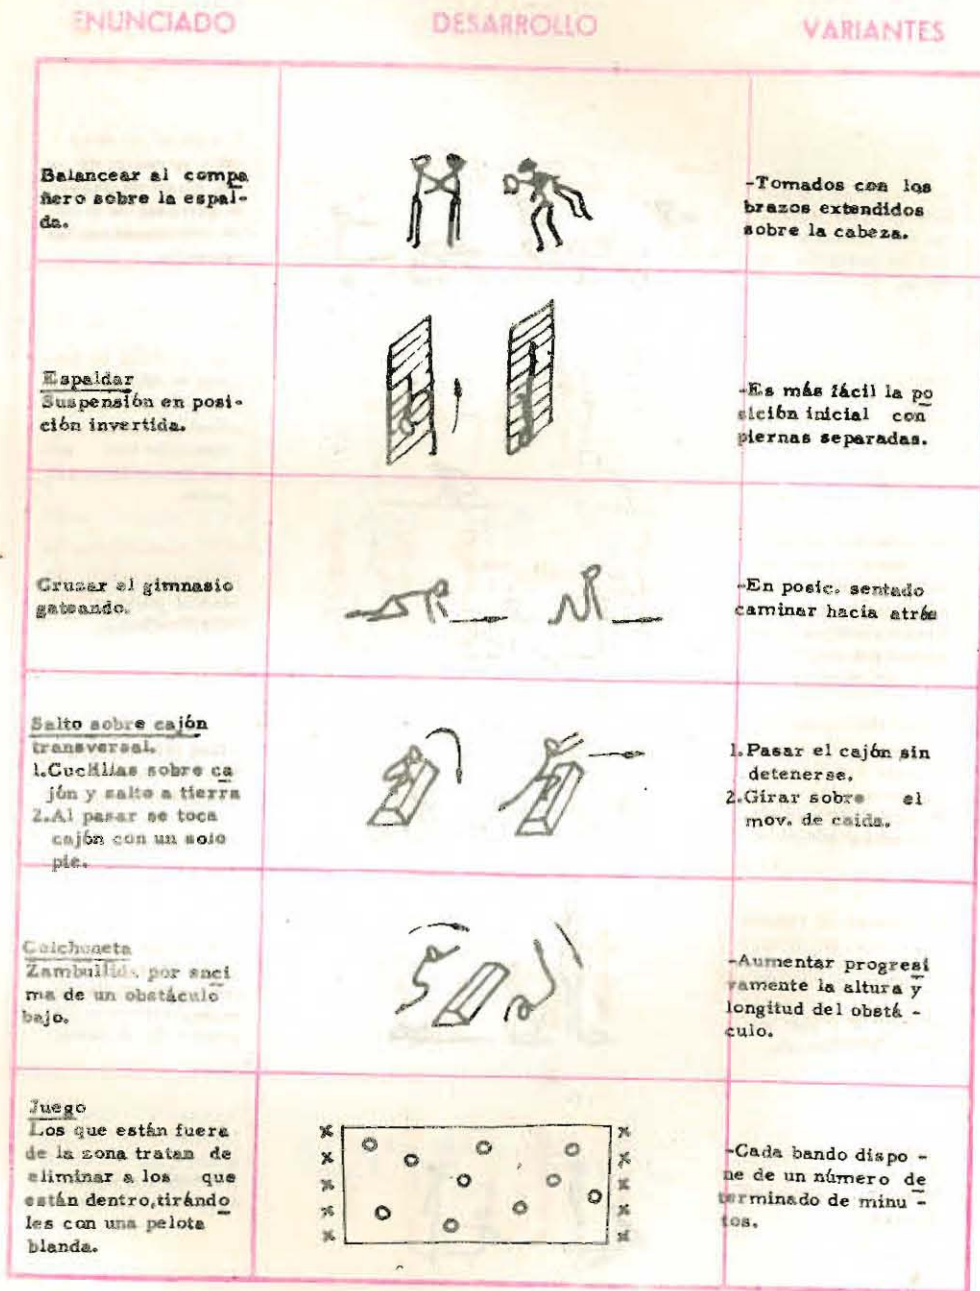 ENUNCIADO
DESARROLLO
VARIANTES
Balancear al compa
ñero sobre la espal-
da.
-Tomados con los
brazos extendidos
sobre la cabeza.
Espaldar
Suspensión en posi-
ción invertida.
-Es más fácil la po
sición inicial con
piernas separadas.
Cruzar el gimnasio
gateando.
-En posic. sentado
caminar hacia atrás
Salto sobre cajón
transversal.
1.Cuclillas sobre ca
jón y salto a tierra
2.Al pasar se toca
cajón con un solo
pie.
1.Pasar el cajón sin
detenerse.
2.Girar sobre el
mov. de caida.
Colchoneta
Zambullida por enci
ma de un obstáculo
bajo.
-Aumentar progresi
vamente la altura y
longitud del obstá -
culo.
Juego
Los que están fuera
de la zona tratan de
eliminar a los que
están dentro,tirándo
les con una pelota
blanda.
-Cada bando dispo -
ne de un número de
terminado de minu -
tos.